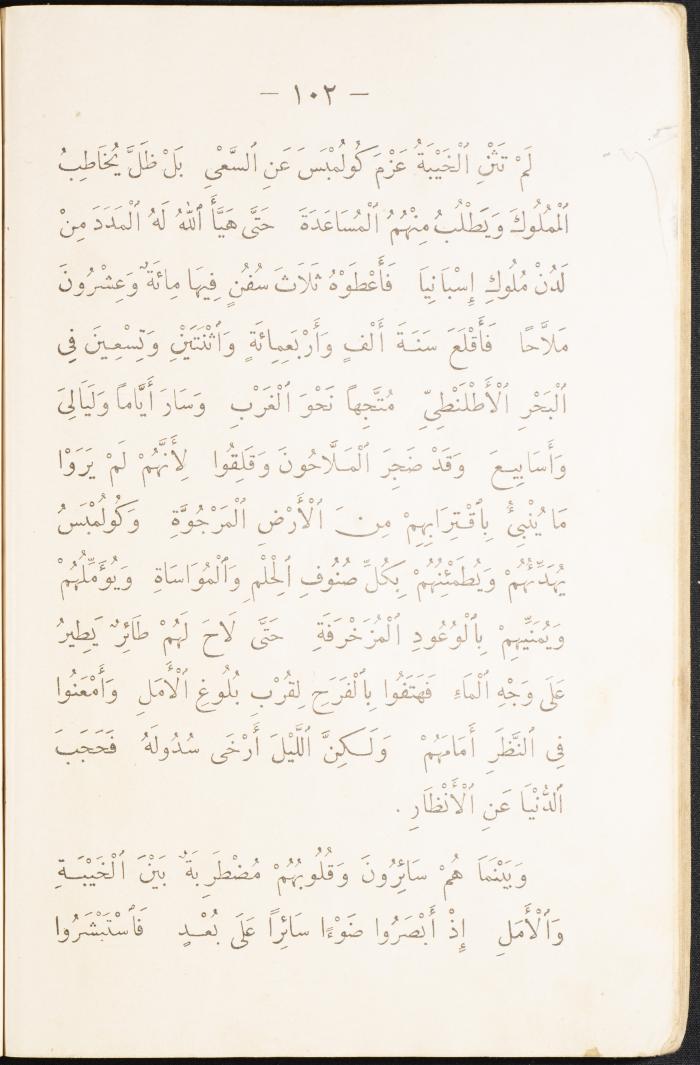 – ١٠٢ –
لَمْ تَثْنِ ٱلْخَيْبَةُ عَزْمَ كُولُمْبَسَ عَنِ ٱلسَّعْيِ بَلْ ظَلَّ يُخَاطِبُ
ٱلْمُلُوكَ وَيَطْلُبُ مِنْهُمُ ٱلْمُسَاعَدَةَ حَتَّى هَيَّأَ ٱللهُ لَهُ ٱلْمَدَدَ مِنْ
لَدُنْ مُلُوكِ إِسْبَانِيَا فَأَعْطَوْهُ ثَلَاثَ سُفُنٍ فِيهَا مِائَةٌ وَعِشْرُونَ
مَلَّاحًا فَأَقْلَعَ سَنَةَ أَلْفٍ وَأَرْبَعِمِائَةٍ وَٱثْنَتَيْنِ وَتِسْعِينَ فِي
ٱلْبَحْرِ ٱلْأَطْلَنْطِيِّ مُتَّجِهاً نَحْوَ ٱلْغَرْبِ وَسَارَ أَيَّاماً وَلَيَالِىَ
وَأَسَابِيعَ وَقَدْ ضَجِرَ ٱلْمَلَّاحُونَ وَقَلِقُوا لِأَنَّهُمْ لَمْ يَرَوْا
مَا يُنْبِئُ بِٱقْتِرَابِهِمْ مِنَ ٱلْأَرْضِ ٱلْمَرْجُوَّةِ وَكُولُمْبَسُ
يُهَدِّئُهُمْ وَيُطَمْئِنُهُمْ بِكُلِّ صُنُوفِ ٱلْحِلْمِ وَٱلْمُوَاسَاةِ وَيُؤَمِّلُهُمْ
وَيُمَنِّيهِمْ بِٱلْوُعُودِ ٱلْمُزَخْرَفَةِ حَتَّى لَاحَ لَهُمْ طَائِرٌ يَطِيرُ
عَلَى وَجْهِ ٱلْمَاءِ فَهَتَفُوا بِٱلْفَرَحِ لِقُرْبِ بُلُوغِ ٱلْأَمَلِ وَأَمْعَنُوا
فِي ٱلنَّظَرِ أَمَامَهُمْ وَلَكِنَّ ٱللَّيْلَ أَرْخَى سُدُولَهُ فَحَجَبَ
ٱلدُّنْيَا عَنِ ٱلْأَنْظَارِ .
وَبَيْنَمَا هُمْ سَائِرُونَ وَقُلُوبُهُمْ مُضْطَرِبَةٌ بَيْنَ ٱلْخَيْبَةِ
وَٱلْأَمَلِ إِذْ أَبْصَرُوا ضَوْءًا سَائِرًا عَلَى بُعْدٍ فَٱسْتَبْشَرُوا